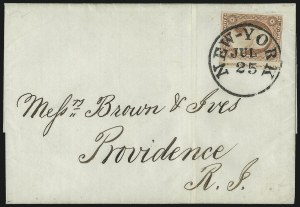 NEW-YORK
JUL
25
Messrs Brown & Ives
Providence
R. I.